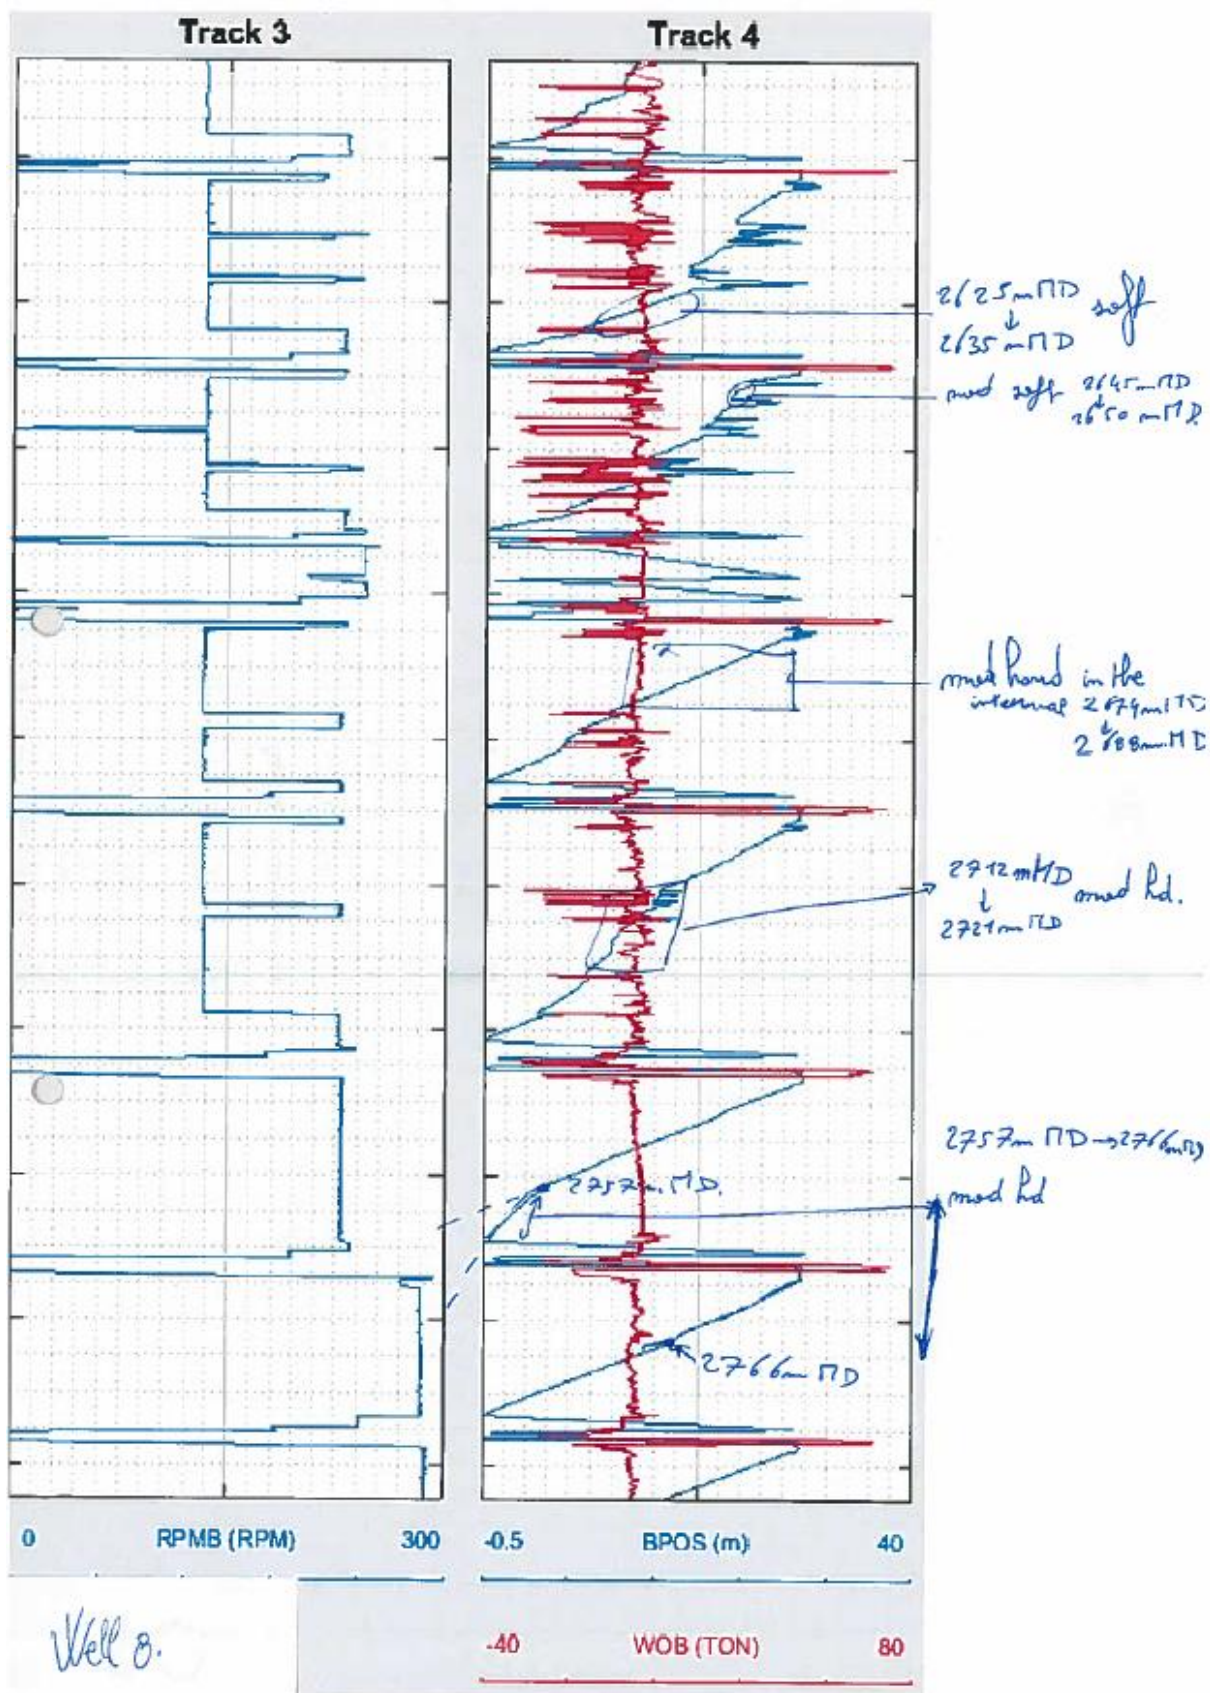 Track 3
Track 4
2625 m MD soft
↓
2635 m MD
med soft 2645 m MD
↓
2650 m MD
med hard in the
interval 2674 m MD
↓
2688 m MD
2712 m MD
↓ med hd.
2721 m MD
2757 m MD → 2766 m MD
med hd
2757 m MD.
2766 m MD
0 RPMB (RPM) 300
-0.5 BPOS (m) 40
Well 8.
-40 WOB (TON) 80